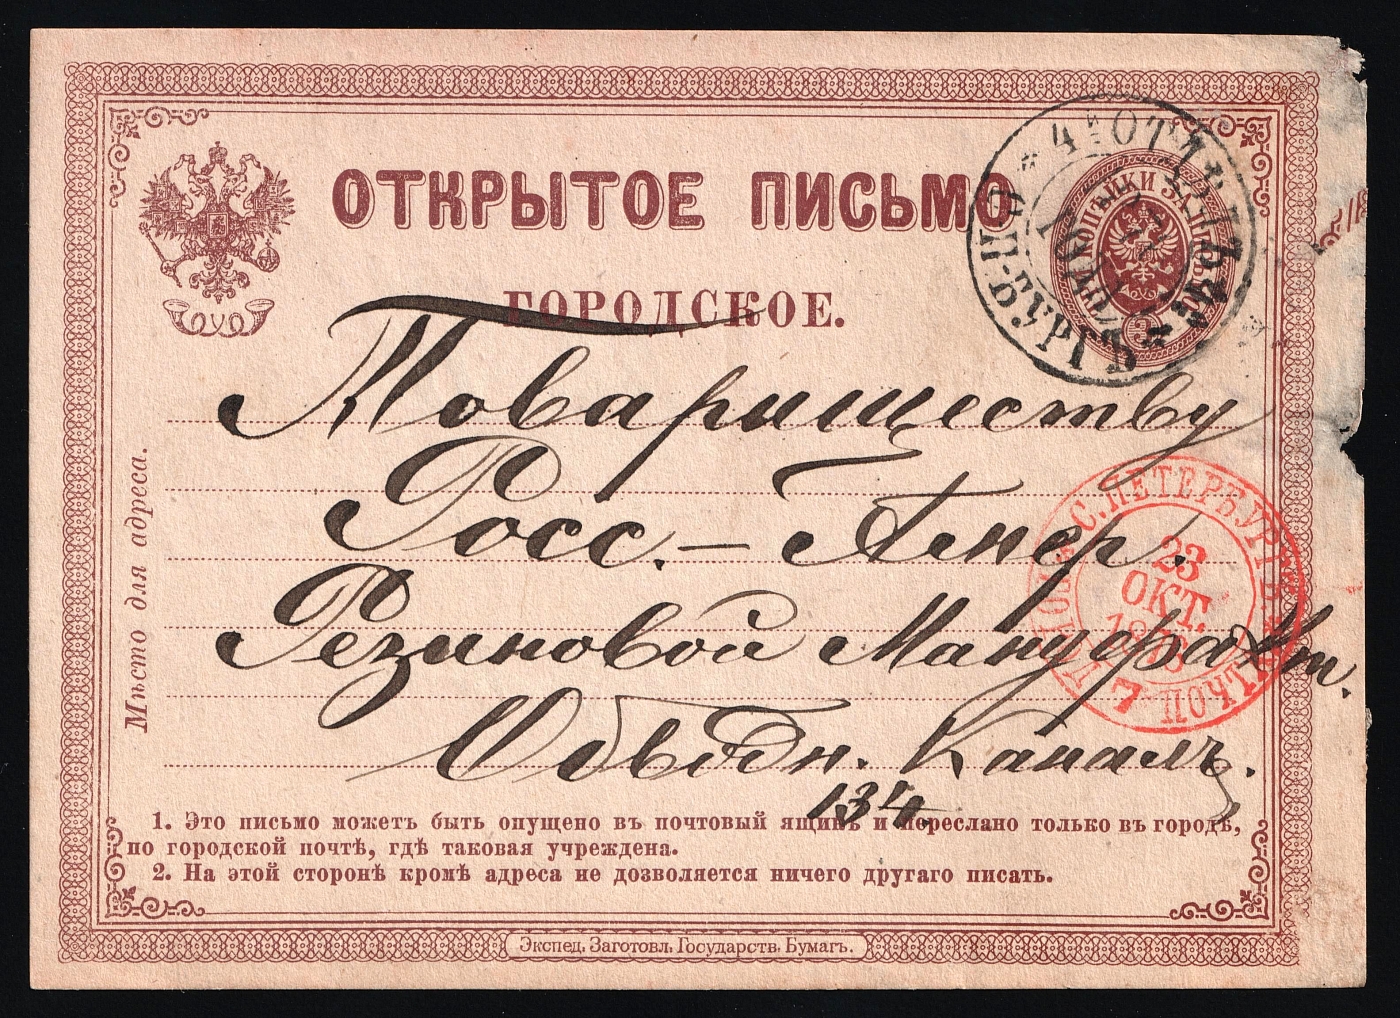 ОТКРЫТОЕ ПИСЬМО
ГОРОДСКОЕ.
С.П.БУРГЪ
Товариществу
Росс. – Амер.
Резиновой Мануфакт.
Обводн. Каналъ.
134
С.ПЕТЕРБУРГЪ
23
ОКТ.
7
Мѣсто для адреса.
1. Это письмо можетъ быть опущено въ почтовый ящикъ и переслано только въ городѣ,
по городской почтѣ, гдѣ таковая учреждена.
2. На этой сторонѣ кромѣ адреса не дозволяется ничего другаго писать.
Экспед. Заготовл. Государств. Бумагъ.